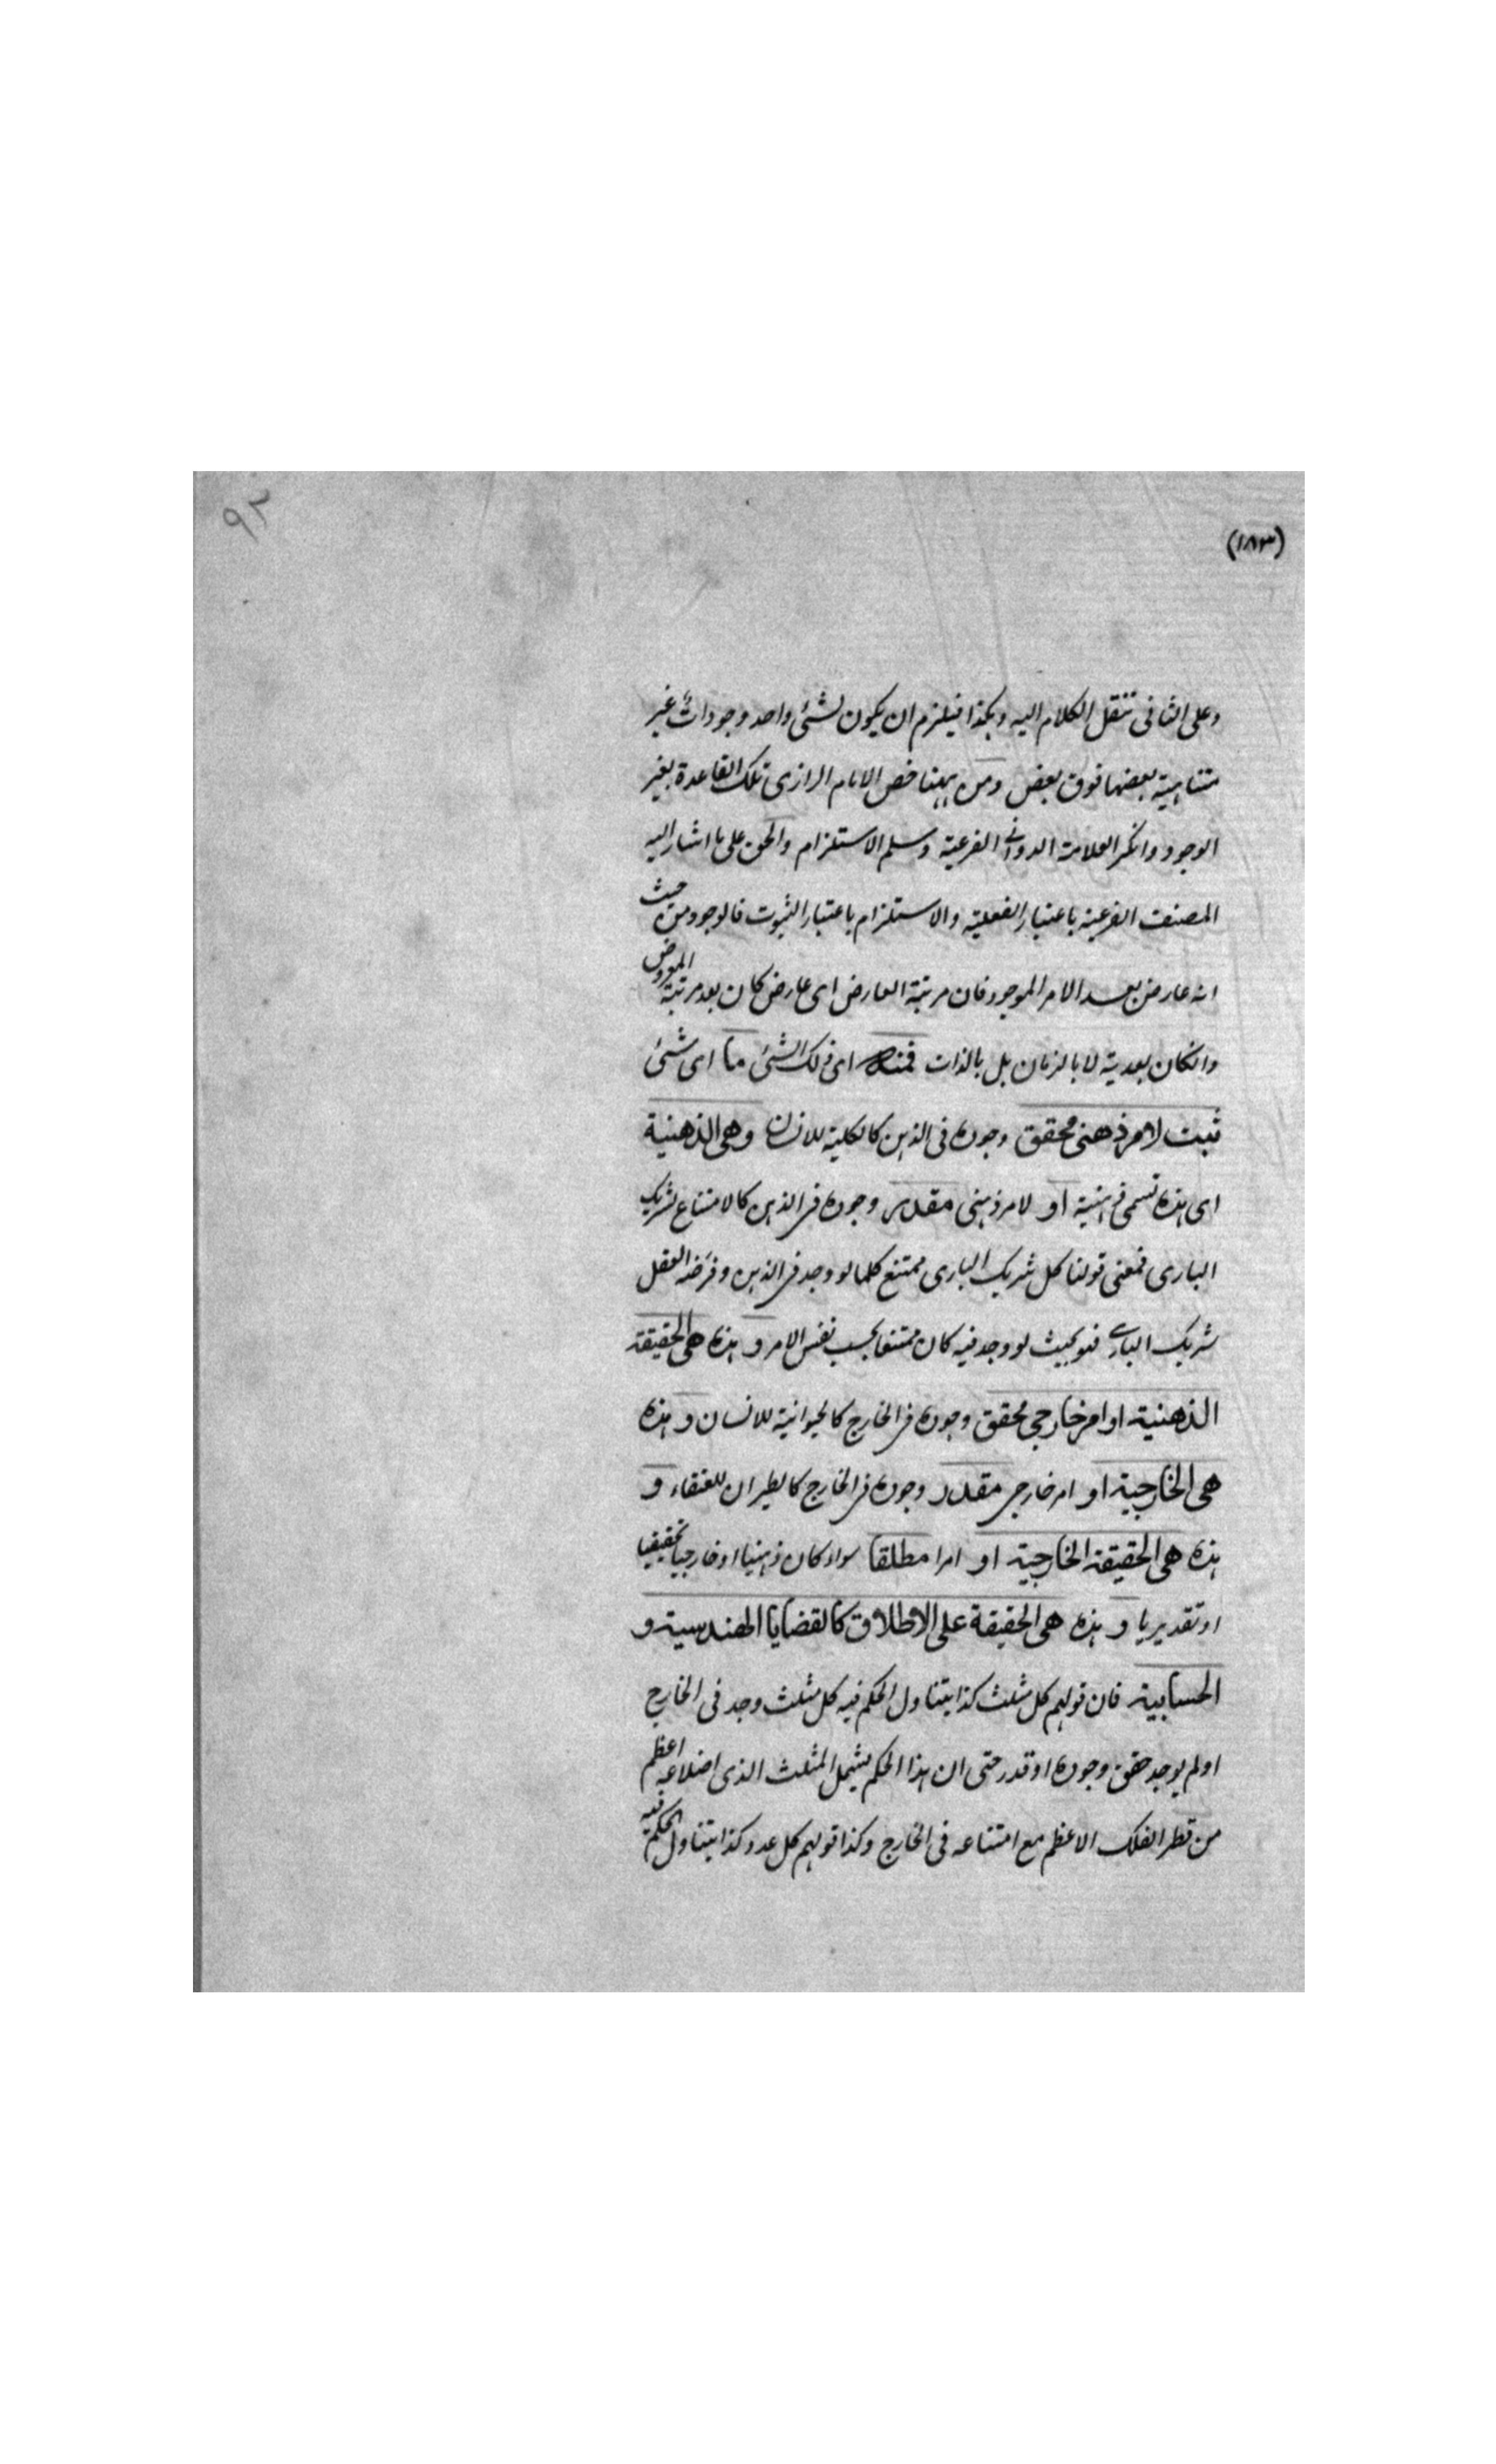 ۹۲
(۱۸۳)
وعلى الثانى ننقل الكلام اليه وهكذا فيلزم ان يكون لشئ واحد وجودات غير
متناهية بعضها فوق بعض ومن ههنا خص الامام الرازى تلك القاعدة بغير
الوجود وانكر العلامة الدوانى الفرعية وسلم الاستلزام والحق على ما اشار اليه
المصنف الفرعية باعتبار الفعلية والاستلزام باعتبار الثبوت فالوجود من حيث
انه عارض بعد الامر الموجود فان مرتبة العارض اى عارض كان بعد مرتبة المعروض
وانكان بعدية لا بالزمان بل بالذات فمنه اى ذلك الشئ ما اى شئ
ثبت لامر ذهنى محقق وجوده فى الذهن كالكلية للانسان وهى الذهنية
اى هذه تسمى ذهنية او لامر ذهنى مقدر وجوده فى الذهن كالامتناع لشريك
البارى فمعنى قولنا كل شريك البارى ممتنع كلما لو وجد فى الذهن وفرضه العقل
شريك البارى فهو بحيث لو وجد فيه كان ممتنعا بحسب نفس الامر و هذه هى الحقيقة
الذهنية او امر خارجى محقق وجوده فى الخارج كالحيوانية للانسان و هذه
هى الخارجية او امر خارجى مقدر وجوده فى الخارج كالطيران للعنقاء و
هذه هى الحقيقة الخارجية او امرا مطلقا سواء كان ذهنيا او خارجيا تحقيقيا
او تقديريا و هذه هى الحقيقة على الاطلاق كالقضايا الهندسية و
الحسابية فان قولهم كل مثلث كذا يتناول الحكم فيه كل مثلث وجد فى الخارج
او لم يوجد حقق وجوده او قدر حتى ان هذا الحكم يشمل المثلث الذى اضلاعه اعظم
من قطر الفلك الاعظم مع امتناعه فى الخارج وكذا قولهم كل عدد كذا يتناول الحكم فيه